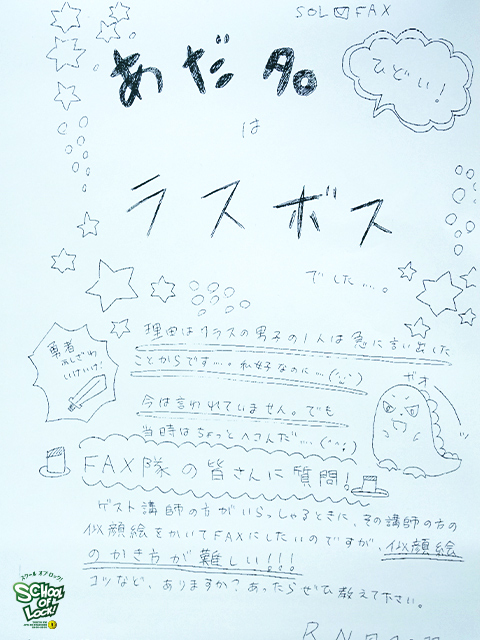 SOL FAX
ひどい!
あだ名
は
ラスボス
でした…。
理由はクラスの男子の1人は急に言い出した
ことからです…。私女子なのに…(;'';)
今は言われていません。でも
当時はちょっとヘコんだ…
勇者
いけいけ!
ガオ
ーッ
FAX隊の皆さんに質問!
ゲスト講師の方がいらっしゃるときに、その講師の方の
似顔絵をかいてFAXにしたいのですが、似顔絵
のかき方が難しい!!!
コツなど、ありますか?あったらぜひ教えて下さい。
スクール オブ ロック!
SCHOOL OF LOCK!
R.N